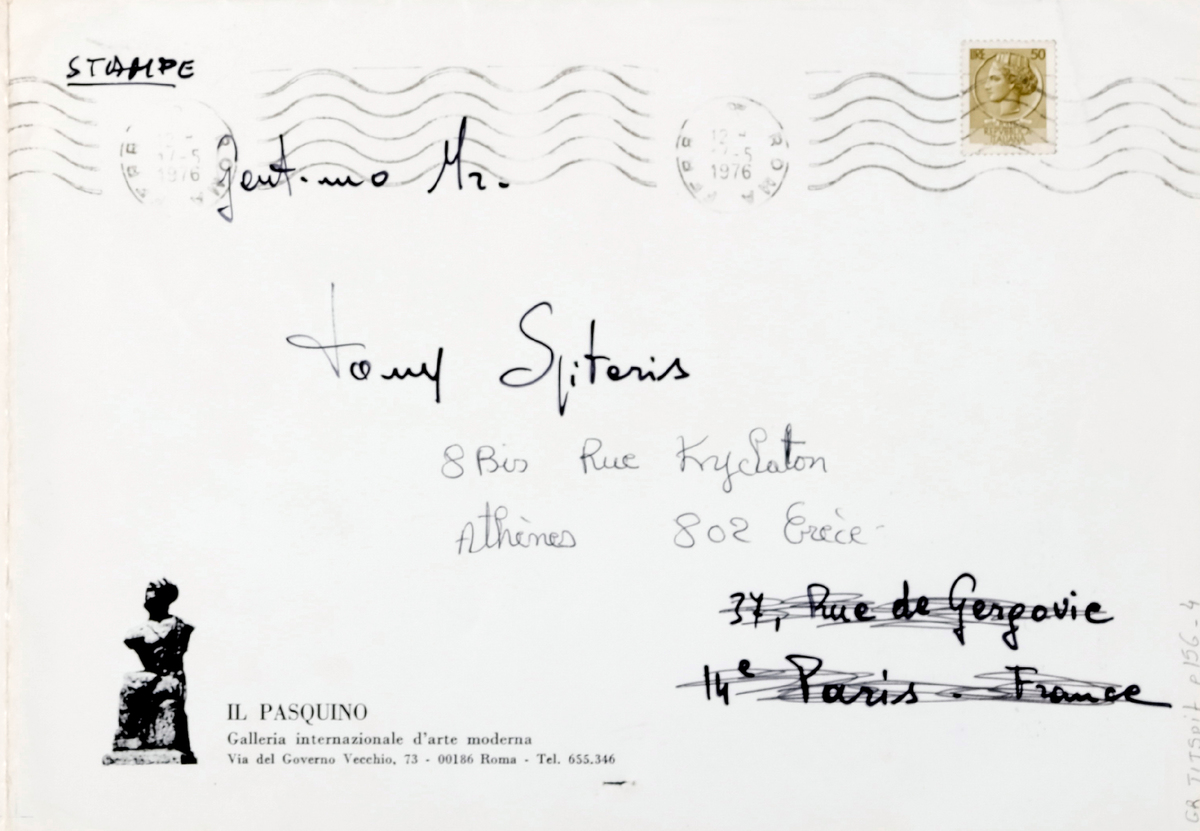 STAMPE
50
12 -
17-5
1976
ROMA
12 -
17-5
1976
ROMA
Gent.mo Mr.
Tony Spiteris
8 Bis Rue Kyclaton
Athènes 802 Grèce
37, Rue de Gergovie
14e Paris - France
IL PASQUINO
Galleria internazionale d'arte moderna
Via del Governo Vecchio, 73 - 00186 Roma - Tel. 655.346